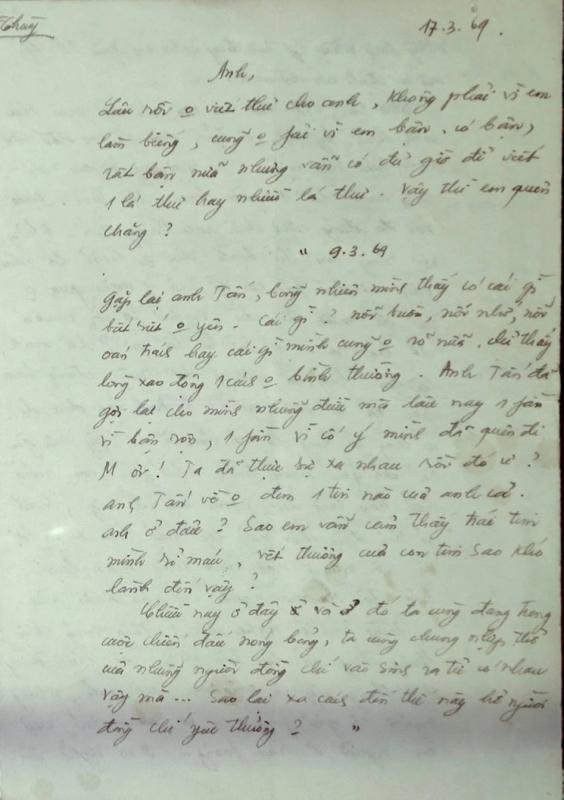 Thuỳ
17.3.69.
Anh,
Lâu rồi o viết thư cho anh, không phải vì em
làm biếng, cũng o fải vì em bận. có bận,
rất bận nữa nhưng vẫn có đủ giờ để viết
1 lá thư hay nhiều lá thư. Vậy thì em quên
chăng?
" 9.3.69
Gặp lại anh Tấn, bỗng nhiên mình thấy có cái gì
bứt rứt o yên. Cái gì? nỗi buồn, nỗi nhớ, nỗi
oán trách hay cái gì mình cũng o rõ nữa. chỉ thấy
lòng xao động 1 cách o bình thường. Anh Tấn đã
gợi lại cho mình những điều mà lâu nay 1 fần
vì bận rộn, 1 fần vì cố ý mình đã quên đi
M ơi! Ta đã thực sự xa nhau rồi đó ư?
anh Tấn về o đem 1 tin nào của anh cả.
anh ở đâu? Sao em vẫn cảm thấy trái tim
mình rỉ máu, vết thương của con tim sao khó
lành đến vậy?
Chiều nay ở đây và ở đó ta cũng đang trong
cuộc chiến đấu nóng bỏng, ta cũng chung nhịp thở
của những người đồng chí vào sinh ra tử có nhau
vậy mà... Sao lại xa cách đến thế này hở người
đồng chí yêu thương? "